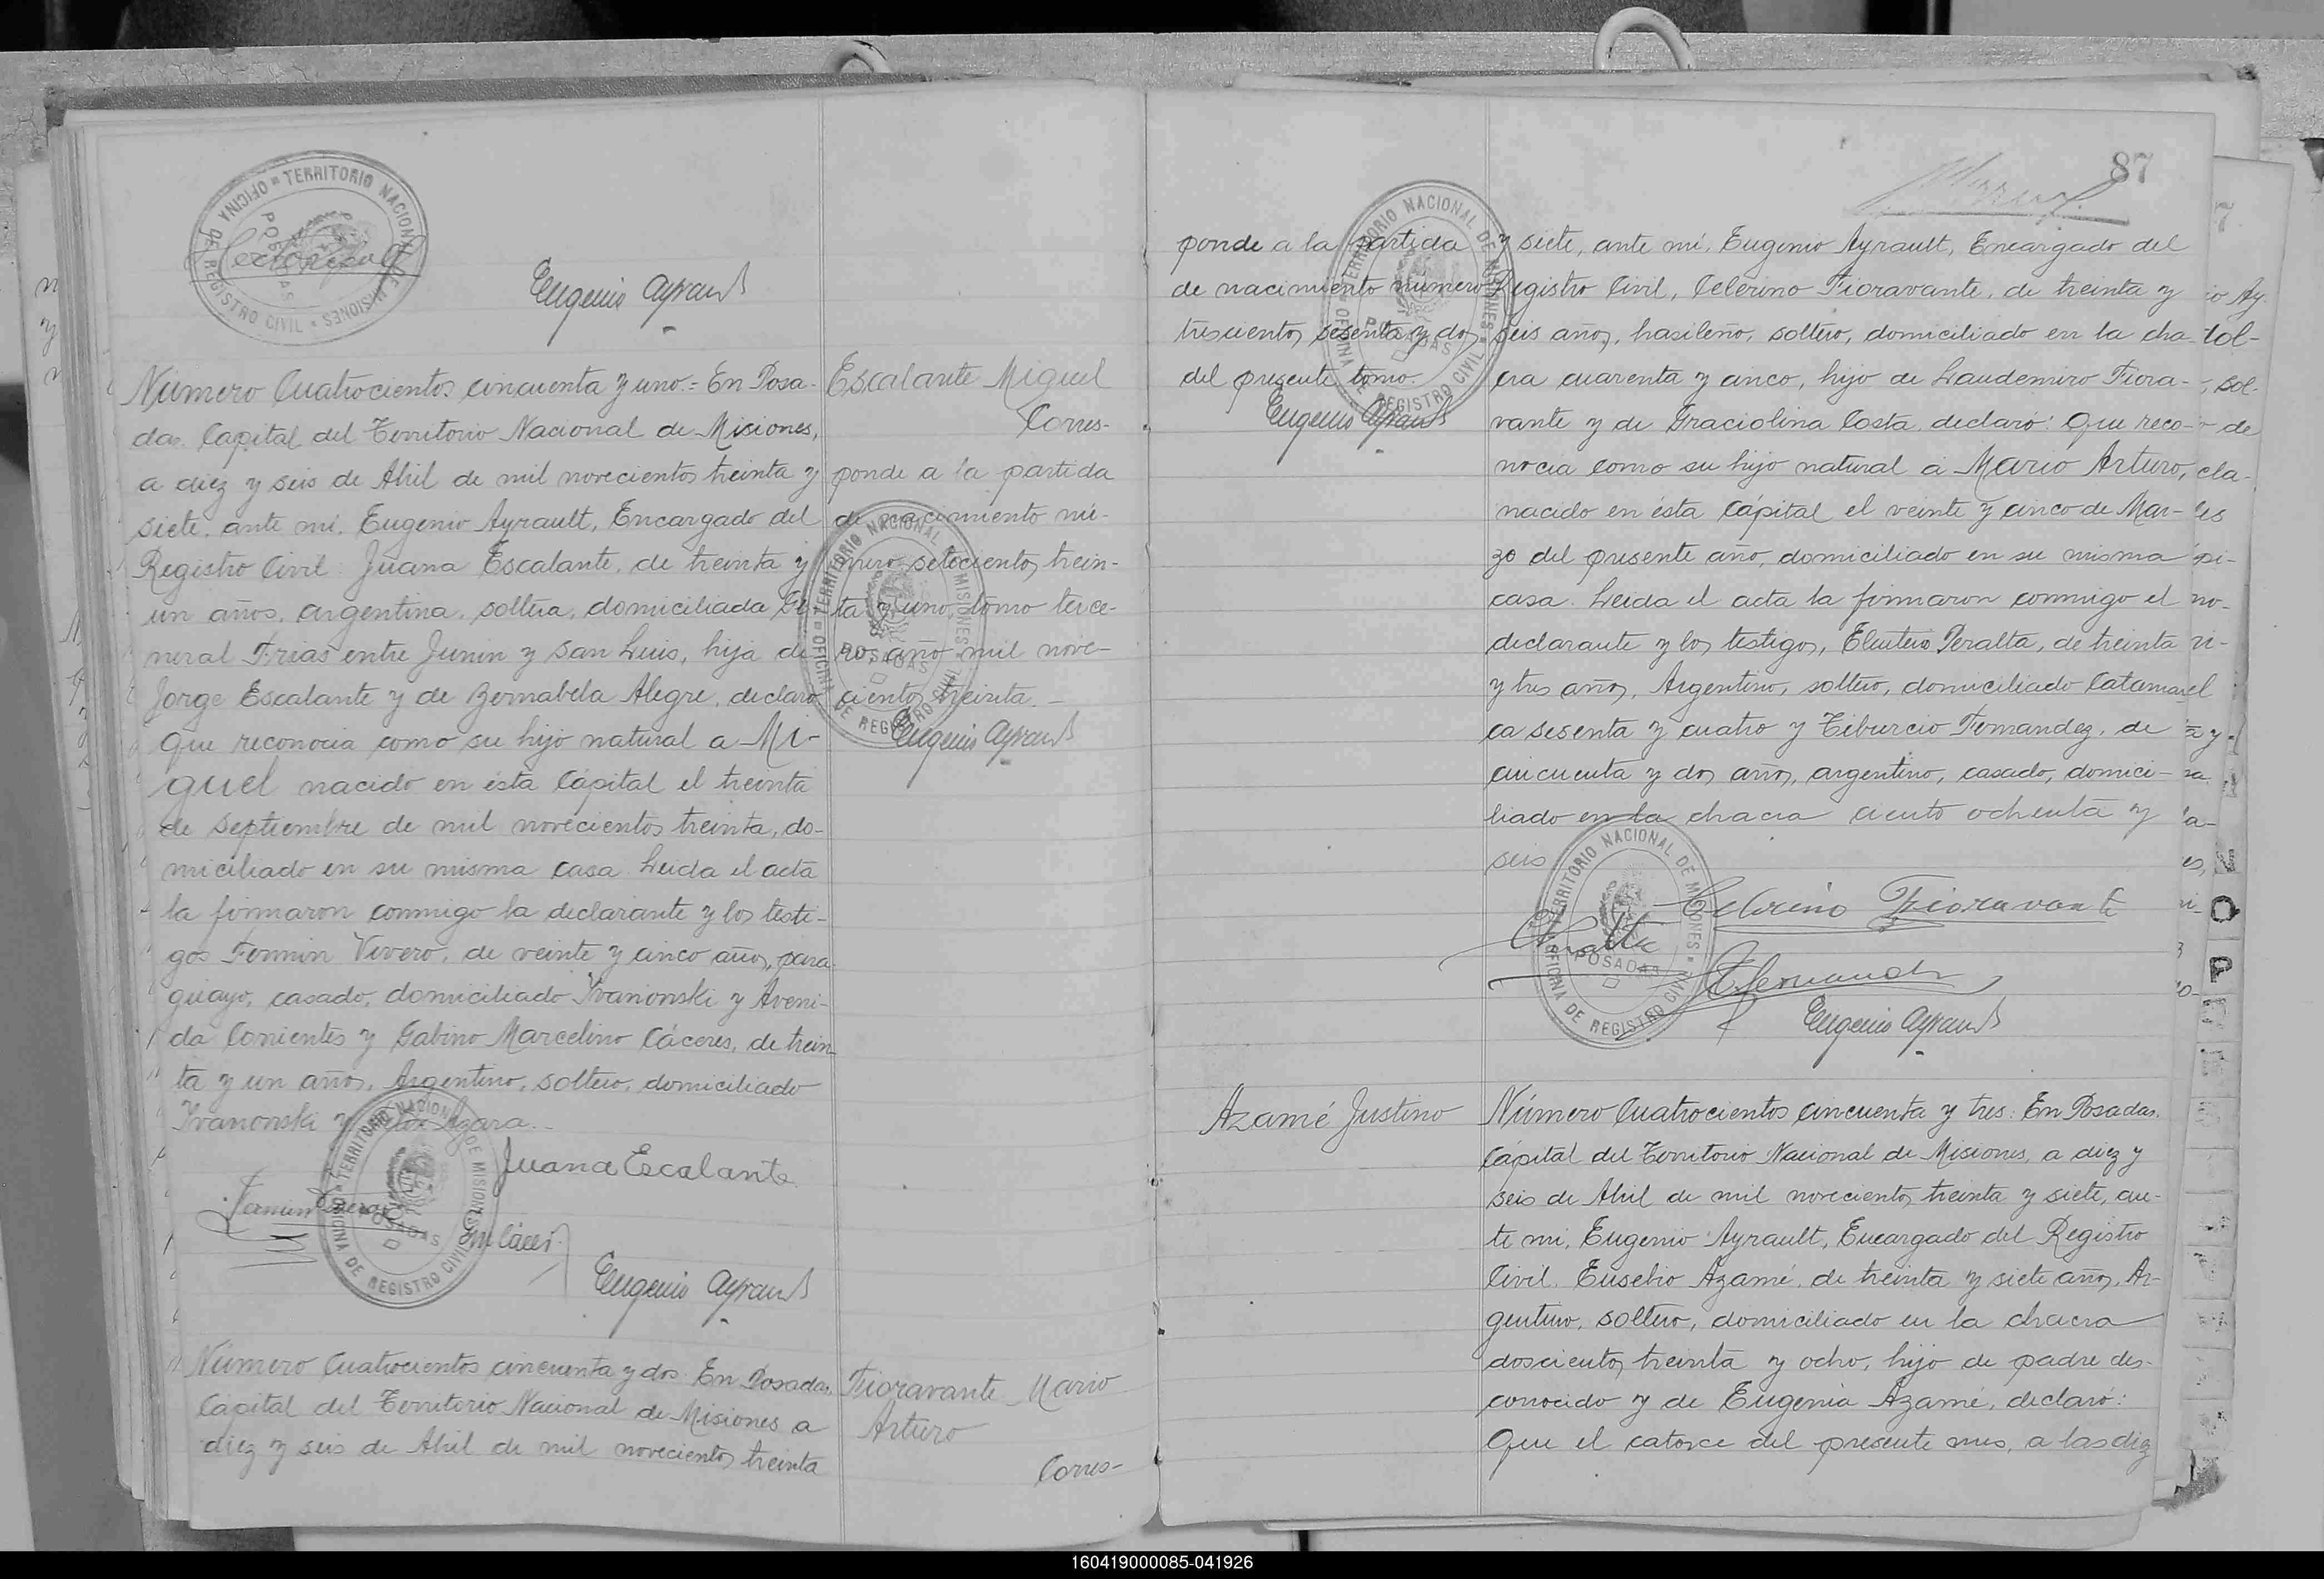 TERRITORIO NACIONAL DE MISIONES
OFICINA DE REGISTRO CIVIL
POSADAS
Eugenio Ayrault
Número Cuatrocientos cincuenta y uno.= En Posa-
das. Capital del Territorio Nacional de Misiones,
a diez y seis de Abril de mil novecientos treinta y
siete, ante mí, Eugenio Ayrault, Encargado del
Registro Civil Juana Escalante, de treinta y
un años, argentina, soltera, domiciliada Ge-
neral Frias entre Junin y San Luis, hija de
Jorge Escalante y de Bernabela Alegre, declaró
Que reconocia como su hijo natural a Mi-
guel nacido en ésta Cápital el treinta
de Septiembre de mil novecientos treinta, do-
miciliado en su misma casa. Leida el acta
la firmaron conmigo la declarante y los testi-
gos Fermin Vivero, de veinte y cinco años, para-
guayo, casado, domiciliado Ivanonski y Aveni-
da Corrientes y Gabino Marcelino Cáceres, de trein-
ta y un años, Argentino, soltero, domiciliado
Ivanonski y Azara.
Juana Escalante
TERRITORIO NACIONAL DE MISIONES
OFICINA DE REGISTRO CIVIL
POSADAS
Eugenio Ayrault
Número Cuatrocientos cincuenta y dos En Posadas,
Cápital del Territorio Nacional de Misiones a
diez y seis de Abril de mil novecientos treinta
Escalante Miguel
Corres-
ponde a la partida
de nacimiento nú-
mero setecientos trein-
ta y uno, tomo terce-
ro, año mil nove-
cientos treinta.-
TERRITORIO NACIONAL DE MISIONES
OFICINA DE REGISTRO CIVIL
POSADAS
Eugenio Ayrault
Fioravante Mario
Arturo
Corres-
ponde a la partida
de nacimiento número
trescientos sesenta y dos
del presente tomo.
TERRITORIO NACIONAL DE MISIONES
OFICINA DE REGISTRO CIVIL
POSADAS
Eugenio Ayrault
87
y siete, ante mí, Eugenio Ayrault, Encargado del
Registro Civil, Celerino Fioravante, de treinta y
seis años, brasileño, soltero, domiciliado en la cha-
cra cuarenta y cinco, hijo de Laudemiro Fiora-
vante y de Graciolina Costa, declaró: Que reco-
nocia como su hijo natural a Mario Arturo,
nacido en ésta Cápital el veinte y cinco de Mar-
zo del presente año, domiciliado en su misma
casa. Leida el acta la firmaron conmigo el
declarante y los testigos, Eleuterio Peralta, de treinta
y tres años, Argentino, soltero, domiciliado Catamar-
ca sesenta y cuatro y Tiburcio Fernandez, de
cincuenta y dos años, argentino, casado, domici-
liado en la chacra ciento ochenta y
seis
Celerino Fioravante
TERRITORIO NACIONAL DE MISIONES
OFICINA DE REGISTRO CIVIL
POSADAS
T. Fernandez
Eugenio Ayrault
Azamé Justino
Número Cuatrocientos cincuenta y tres: En Posadas,
Cápital del Territorio Nacional de Misiones, a diez y
seis de Abril de mil novecientos treinta y siete, an-
te mi, Eugenio Ayrault, Encargado del Registro
Civil, Eusebio Azamé, de treinta y siete años, Ar-
gentino, soltero, domiciliado en la chacra
doscientos treinta y ocho, hijo de padre des-
conocido y de Eugenia Azamé, declaró:
Que el catorce del presente mes, a las diez
160419000085-041926